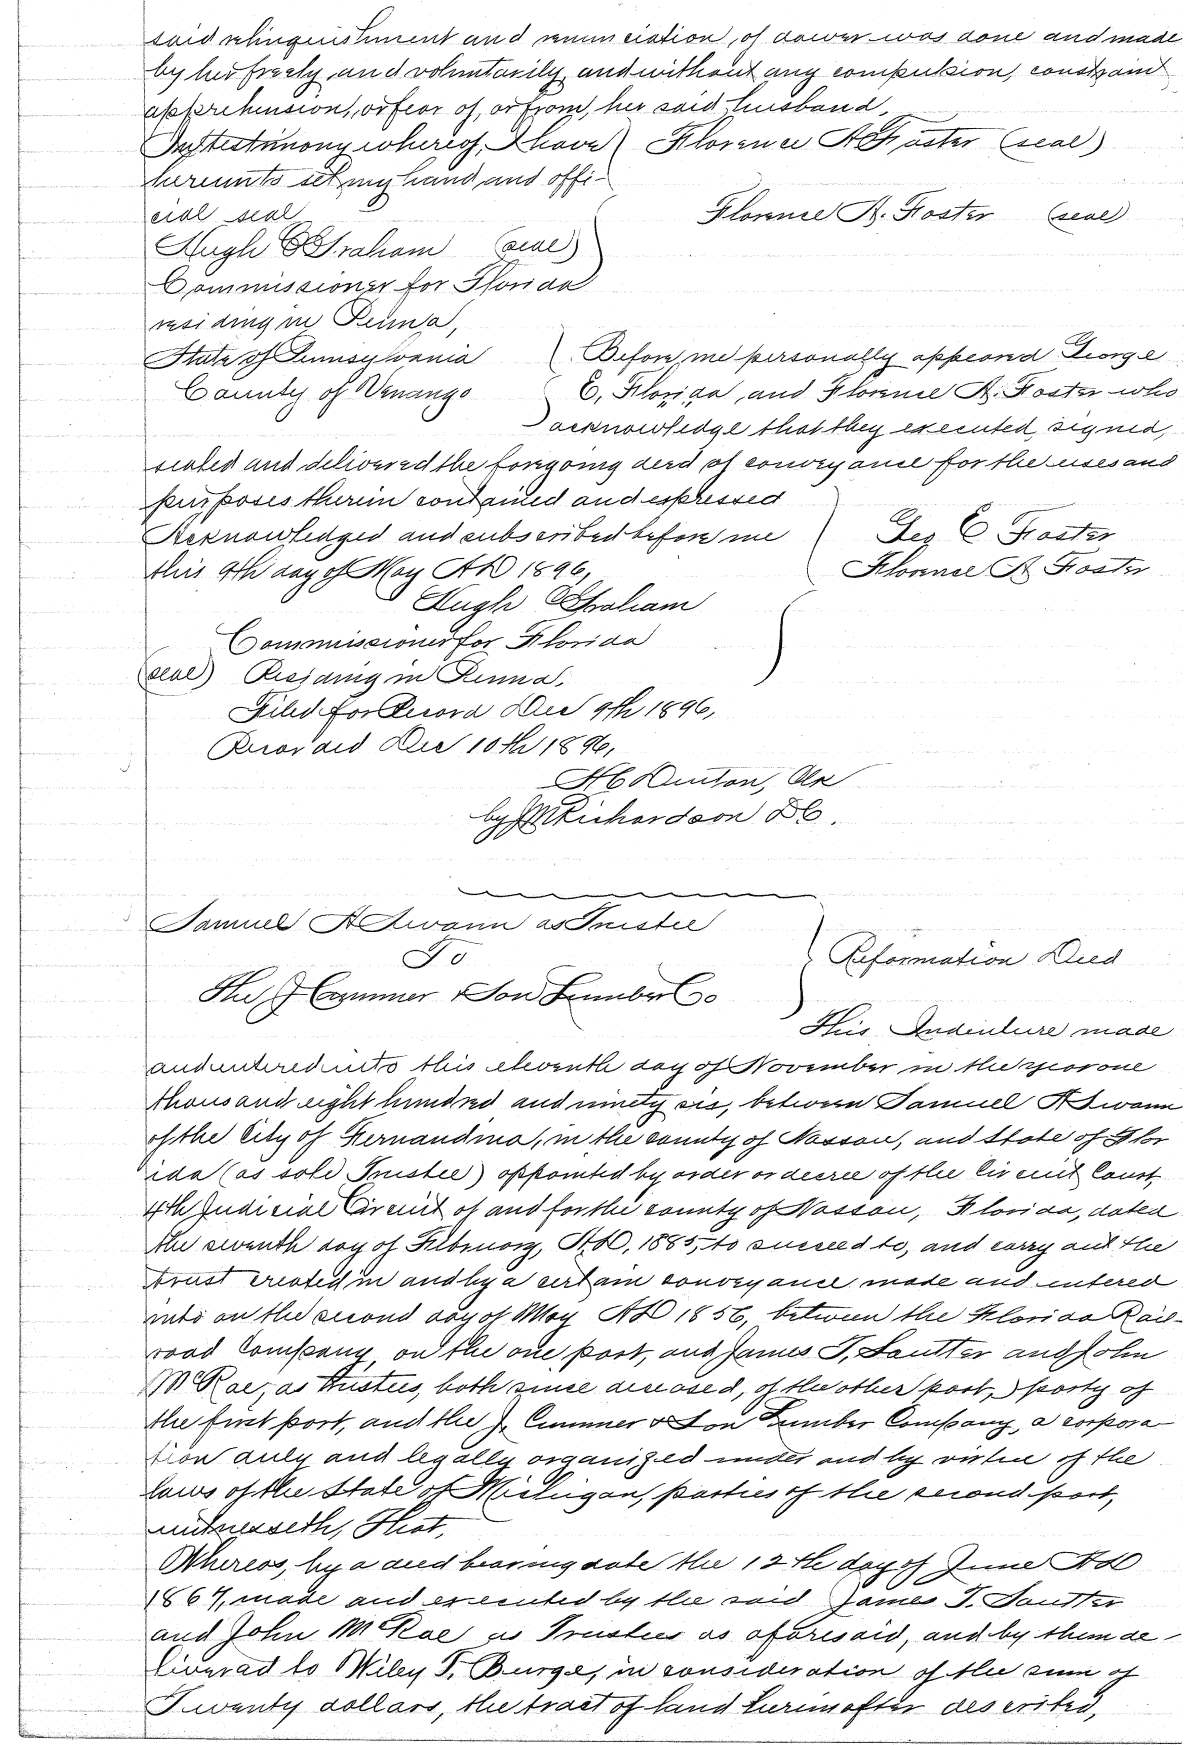 said relinquishment and renunciation, of dower was done and made
by her freely, and voluntarily, and without any compulsion, constraint
apprehension, or fear of, or from, her said husband,
In testimony whereof, I have ) Florence A Foster (seal)
hereunto set my hand and offi-
cial seal Florence A. Foster (seal)
Hugh C Graham (seal)
Commissioner for Florida
residing in Penna,
State of Pennsylvania ) Before me personally appeared George
County of Venango ( E, Florida, and Florence A. Foster who
) acknowledge that they executed, signed,
sealed and delivered the foregoing deed of conveyance for the uses and
purposes therein contained and expressed
Acknowledged and subscribed before me ) Geo E Foster
this 9th day of May AD 1896, Florence A Foster
Hugh C Graham
Commissioner for Florida
(seal) Residing in Penna,
Filed for Record Dec 9th 1896,
Recorded Dec 10th 1896,
H C Dunton, Clk
by J M Richardson D C.
Samuel A Swann as Trustee
To
Reformation Deed
The J Cummer & Son Lumber Co
This Indenture made
and entered into this eleventh day of November in the year one
thousand eight hundred and ninety six, between Samuel A Swann
of the City of Fernandina, in the county of Nassau, and State of Flor
ida (as sole Trustee) appointed by order or decree of the Circuit Court,
4th Judicial Circuit of and for the county of Nassau, Florida, dated
the seventh day of February, A.D, 1885, to succeed to, and carry out the
trust created in and by a certain conveyance made and entered
into on the second day of May AD 1856, between the Florida Rail-
road Company, on the one part, and James T, Soutter and John
McRae, as trustees, both since deceased, of the other part,) party of
the first part, and the J. Cummer & Son Lumber Company, a corpora
tion duly and legally organized under and by virtue of the
laws of the State of Michigan, parties of the second part,
witnesseth, That,
Whereas, by a deed bearing date the 12th day of June AD
1867, made and executed by the said James T. Soutter
and John McRae as Trustees as aforesaid, and by them de-
livered to Wiley T. Burge, in consideration of the sum of
Twenty dollars, the tract of land hereinafter described,